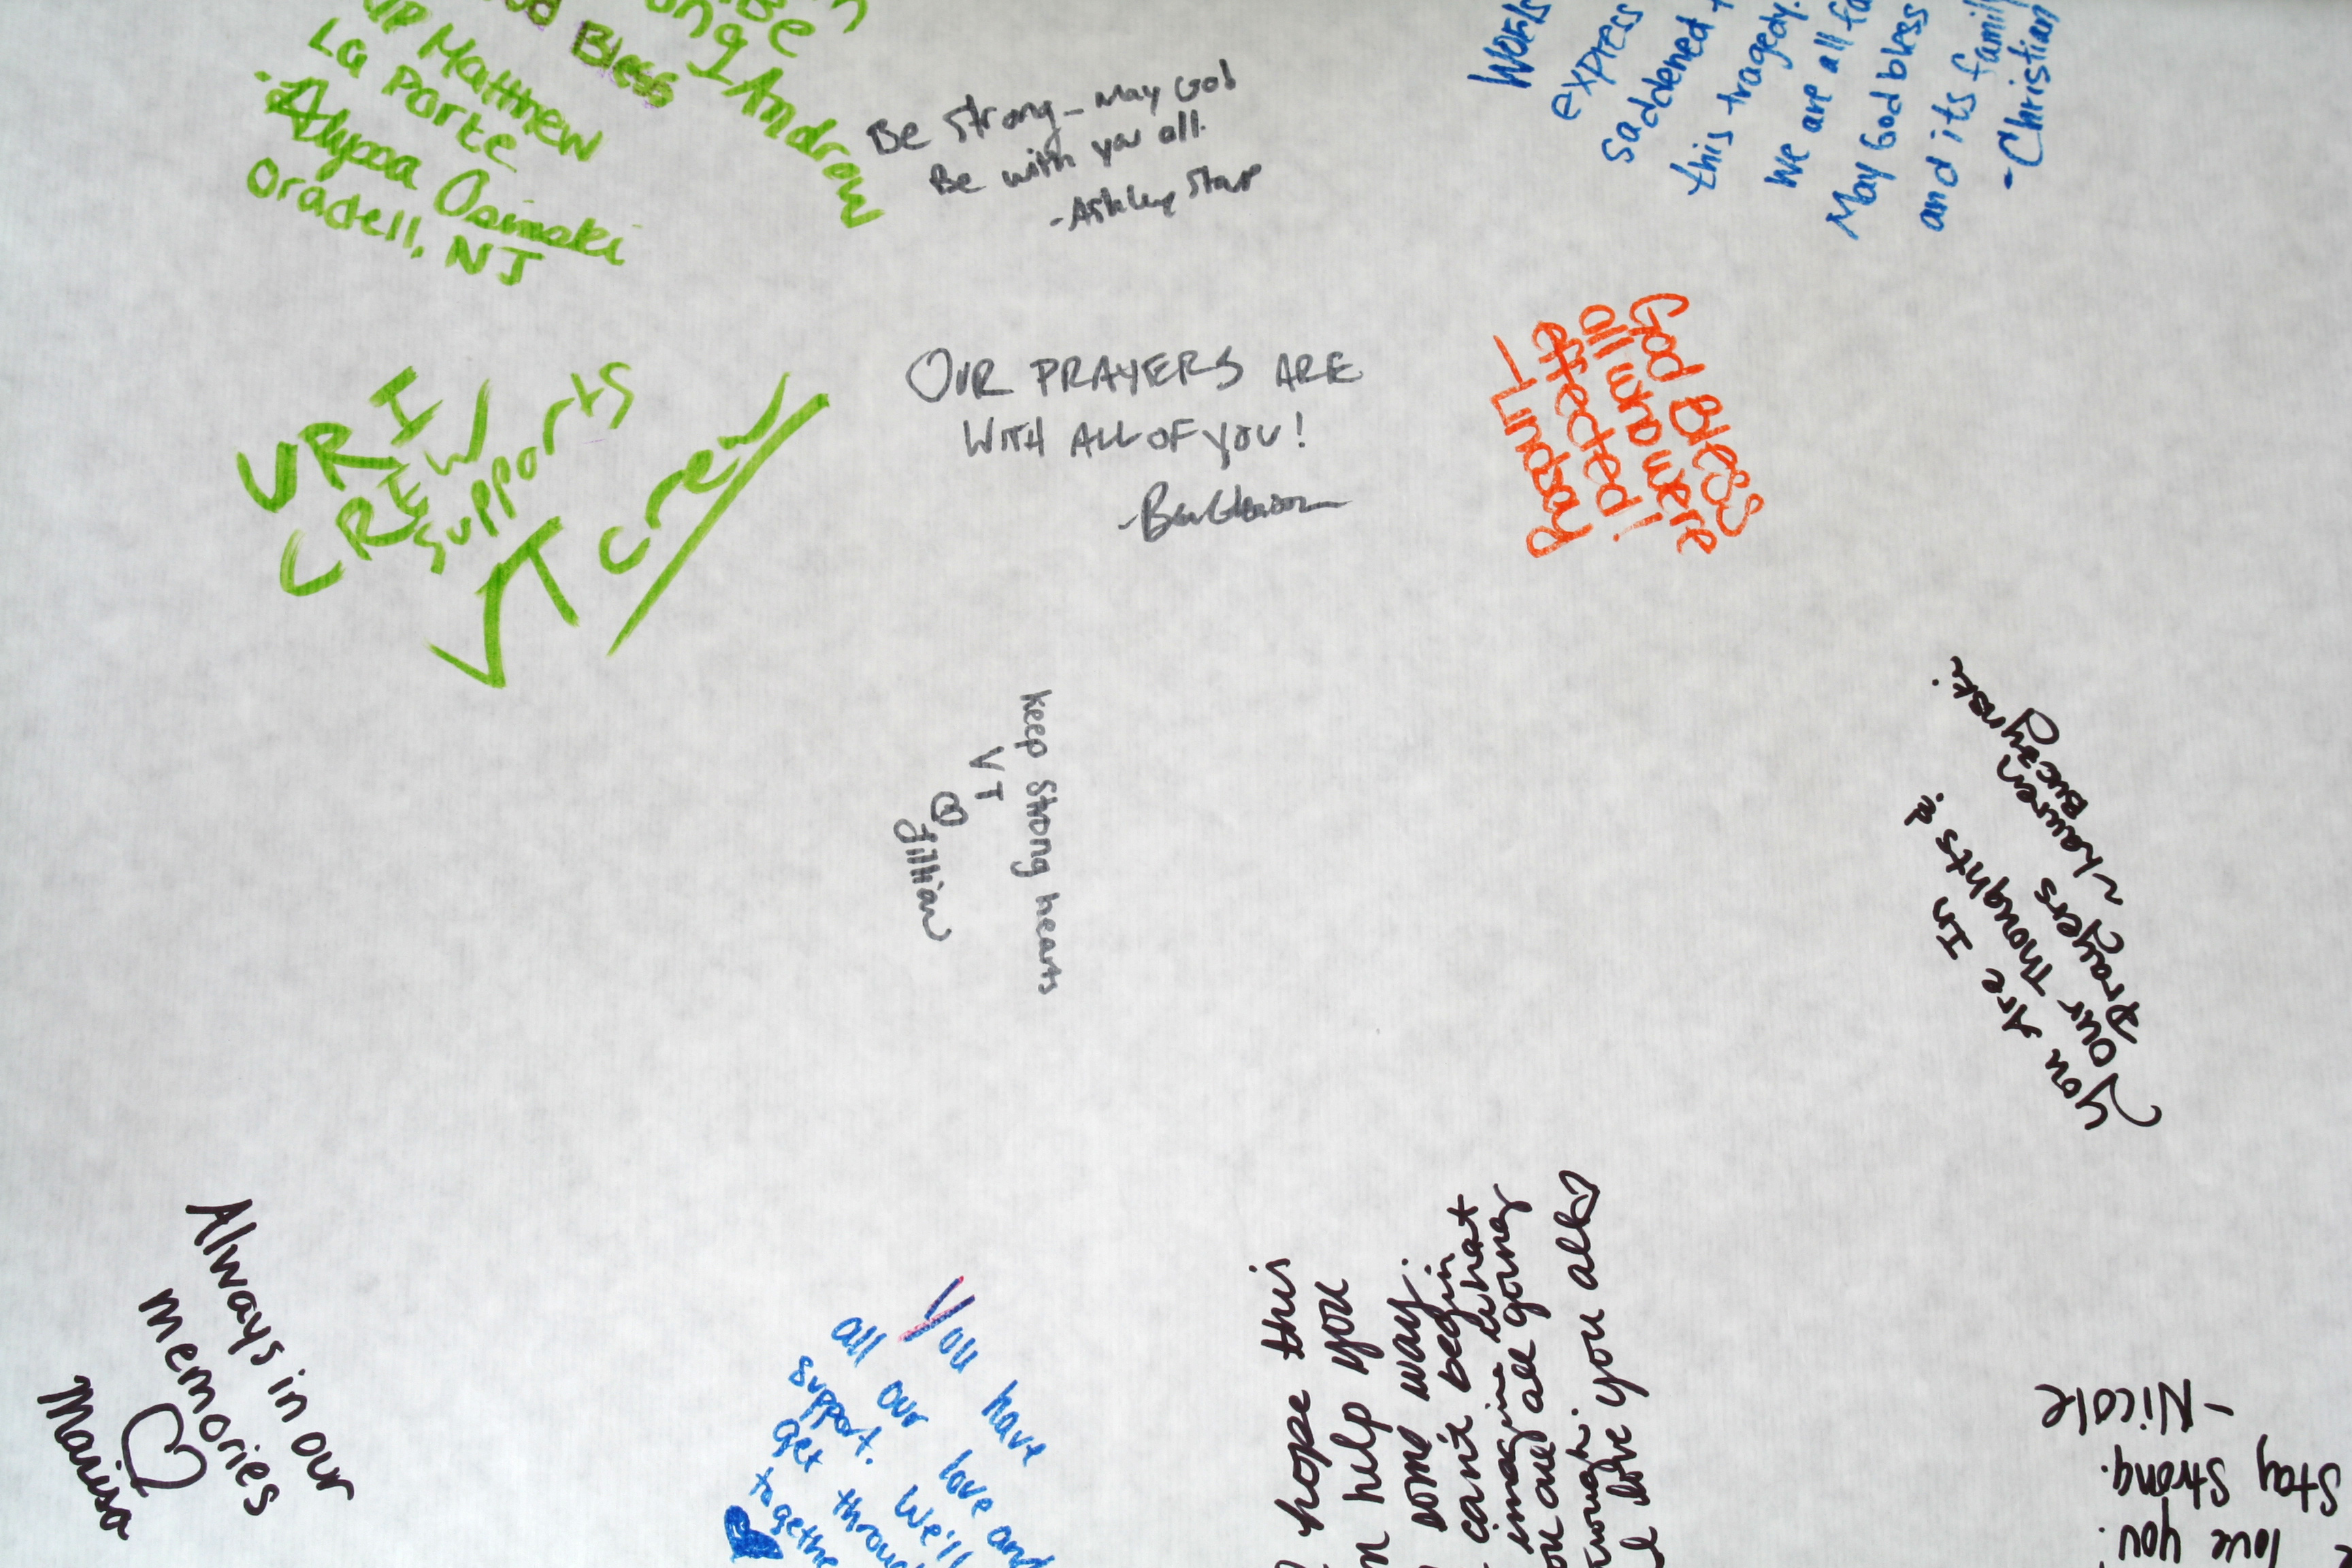 Bless
Be
Andrew
Matthew
La Porte
- Alyssa Osinski
Oradell, NJ
Be Strong - May God
Be with you all.
- Ashley Starr
Words
express
saddened
this tragedy.
We are all
May God bless
and its family
- Christian
URI
CREW
supports
VT crew
OUR PRAYERS ARE
WITH ALL OF YOU!
God Bless
all whom were
effected!
- Lindsay
Keep Strong hearts
VT
Jillian
You Are In
Our Thoughts &
Prayers ~Lauren
Buczynski
Always in our
memories
Marisa
You have
all our love and
support. We'll
get through
hope this
help you
some way.
can't begin
imagine what
you all
love you all
love you.
Stay strong.
- Nicole